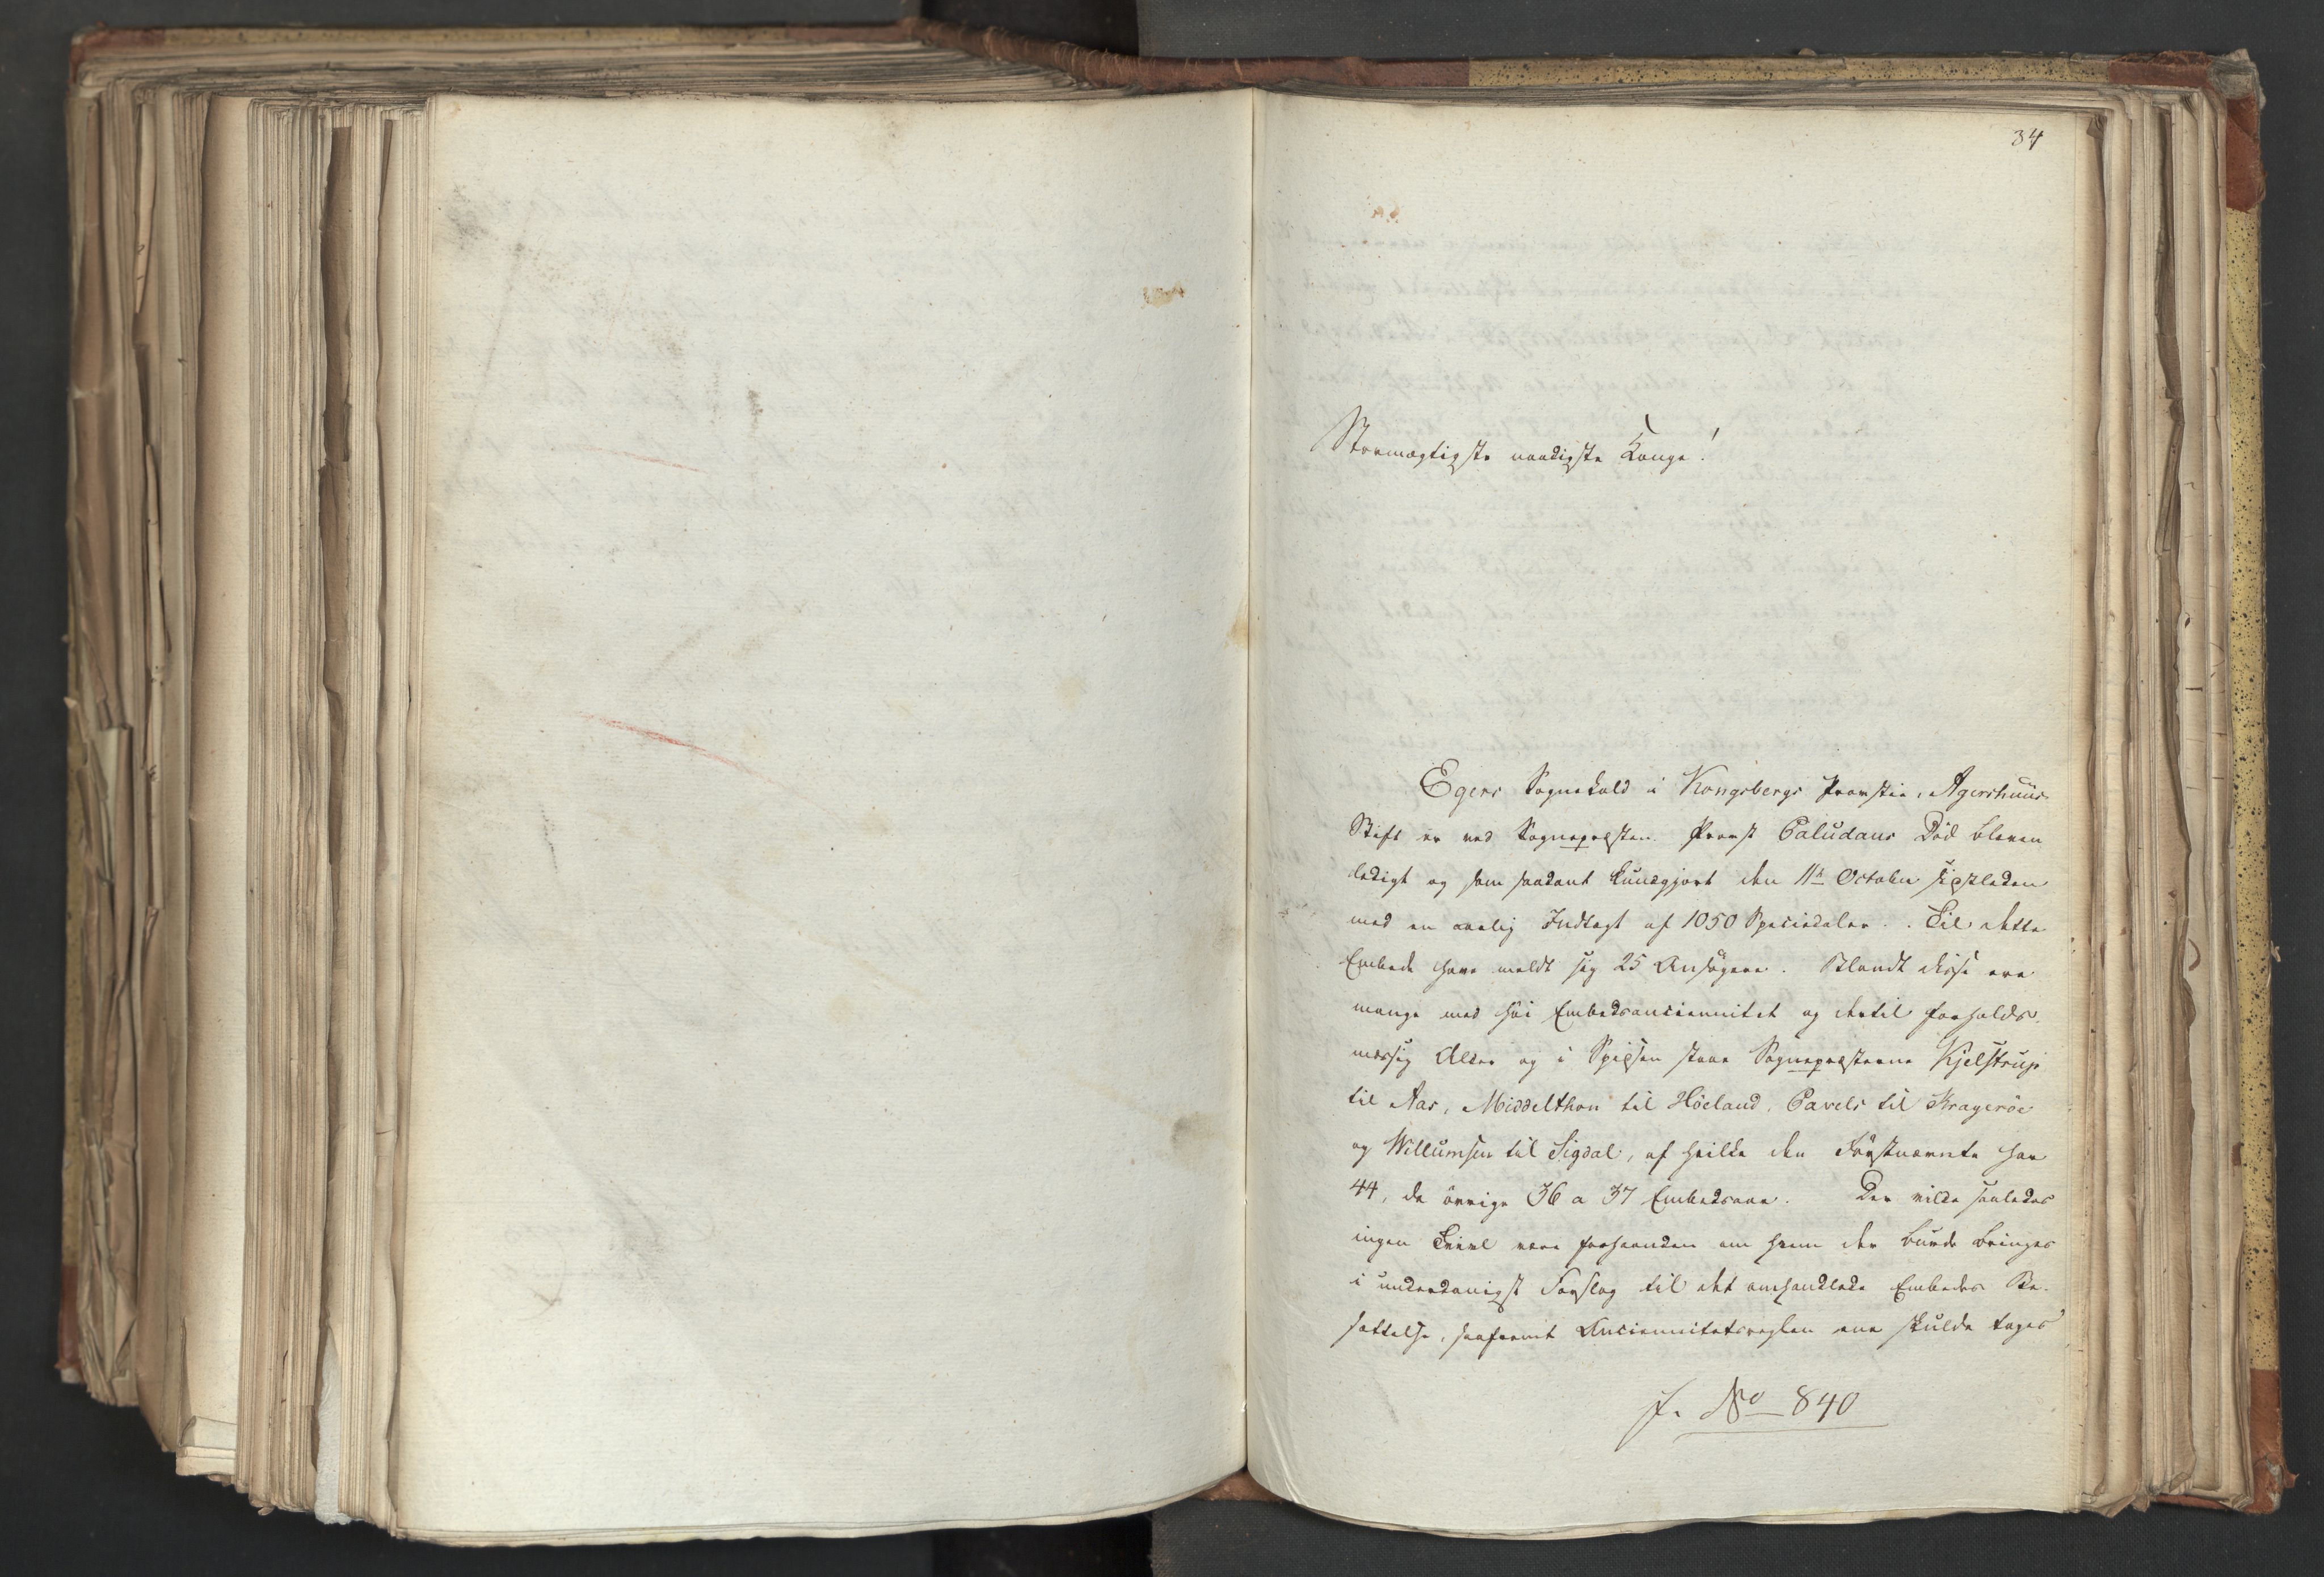 34
Stormægtigste naadigste Konge!
Egers Sognekald i Kongsbergs Provstie, Agershuus
Stift er ved Sognepræsten Provst Paludans Död bleven
ledigt og som saadant kundgjort den 11te October sidstleden
med en aarlig Indtægt af 1050 Speciedaler. Til dette
Embede have meldt sig 25 Ansögere. Blandt disse ere
mange med höi Embedsanciennitet og dertil forholds-
mæssig Alder og i Spidsen staae Sognepræsterne Kjelstrup
til Aas, Middelthon til Höeland, Pavels til Krageröe
og Willumsen til Sigdal, af hvilke den Förstnævnte har
44, de övrige 36 a 37 Embedsaar. Der vilde saaledes
ingen Tvivl være forhaanden om hvem der burde bringes
i underdanigst Forslag til det omhandlede Embedes Be-
sættelse, saafremt Anciennitetsreglen ene skulde tages
J. No 840